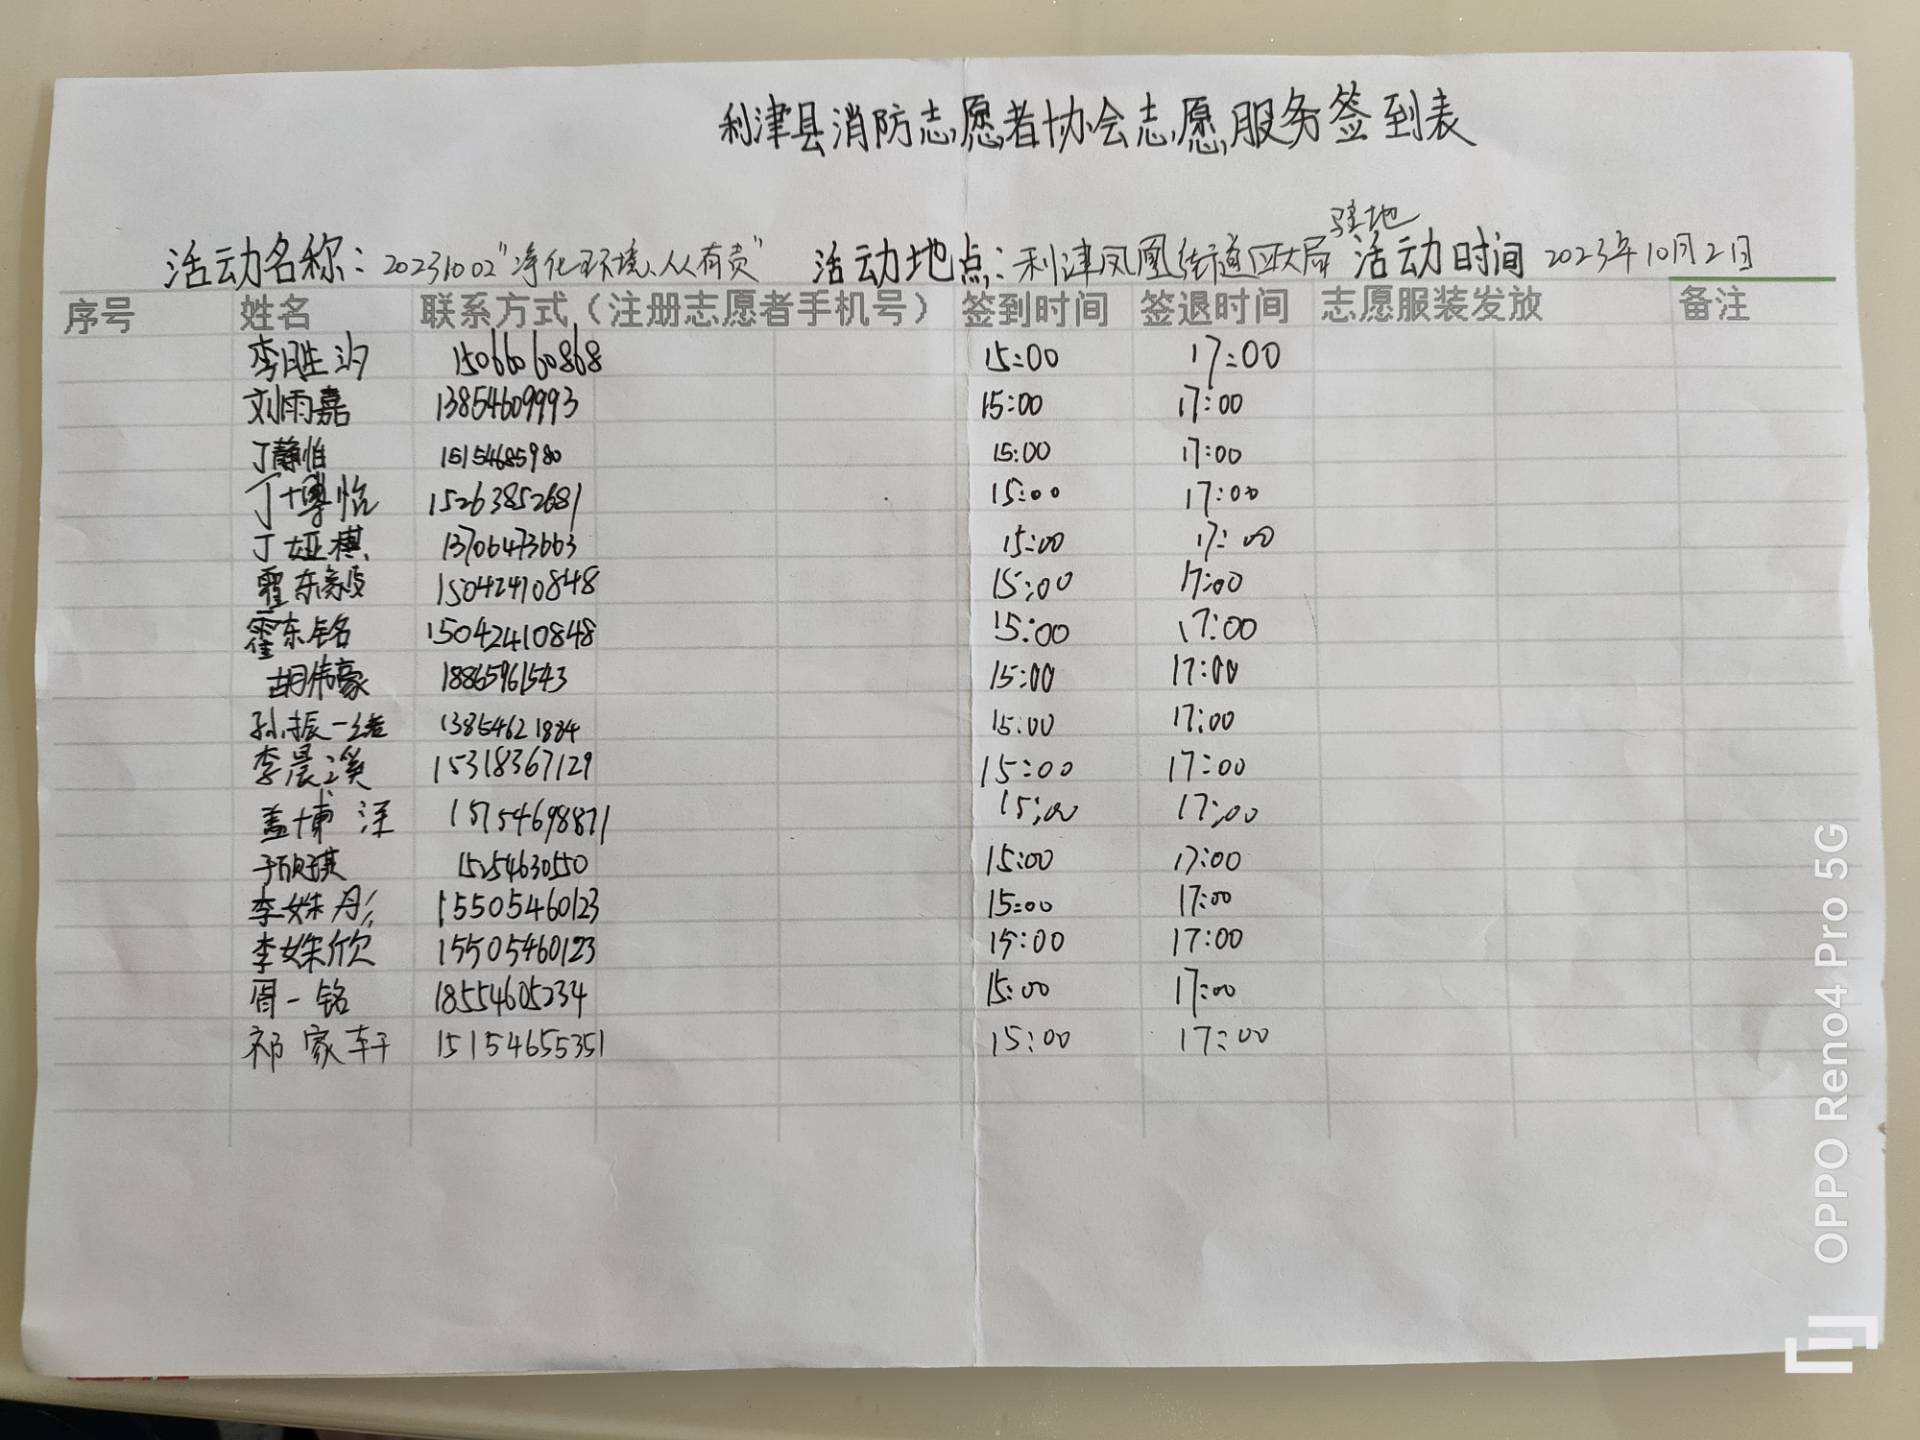 利津县消防志愿者协会志愿服务签到表
驻地
活动名称：20231002“净化环境、人人有责” 活动地点：利津凤凰街道 活动时间 2023年10月2日
序号 姓名 联系方式（注册志愿者手机号） 签到时间 签退时间 志愿服装发放 备注
李胜汐 15066060868 15:00 17:00
刘雨嘉 13854609993 15:00 17:00
丁静怡 15154685980 15:00 17:00
丁博怡 15263852681 15:00 17:00
丁娅棋 13706473663 15:00 17:00
霍东毅 15042410848 15:00 17:00
霍东铭 15042410848 15:00 17:00
胡伟豪 18865961543 15:00 17:00
孙振一 13854621884 15:00 17:00
李晨溪 15318367129 15:00 17:00
盖博 15754698871 15:00 17:00
于欣琪 15254630550 15:00 17:00
李姝彤 15505460123 15:00 17:00
李姝欣 15505460123 15:00 17:00
周一铭 18554605234 15:00 17:00
祁家轩 15154655351 15:00 17:00
OPPO Reno4 Pro 5G